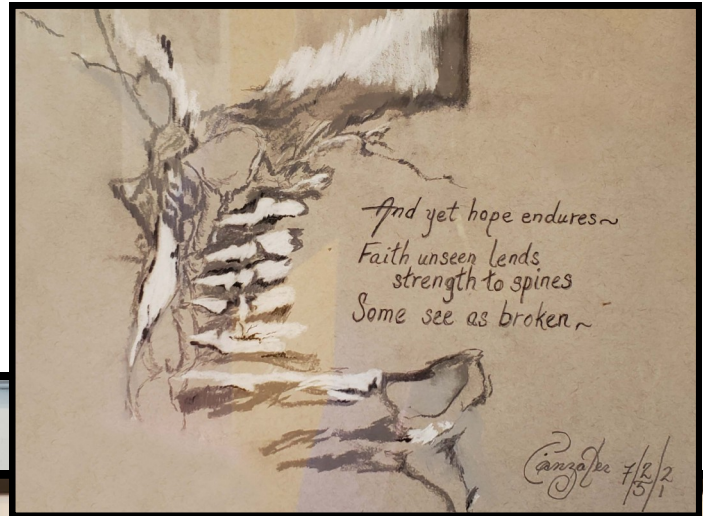 And yet hope endures~
Faith unseen lends
strength to spines
Some see as broken~
7/25/21